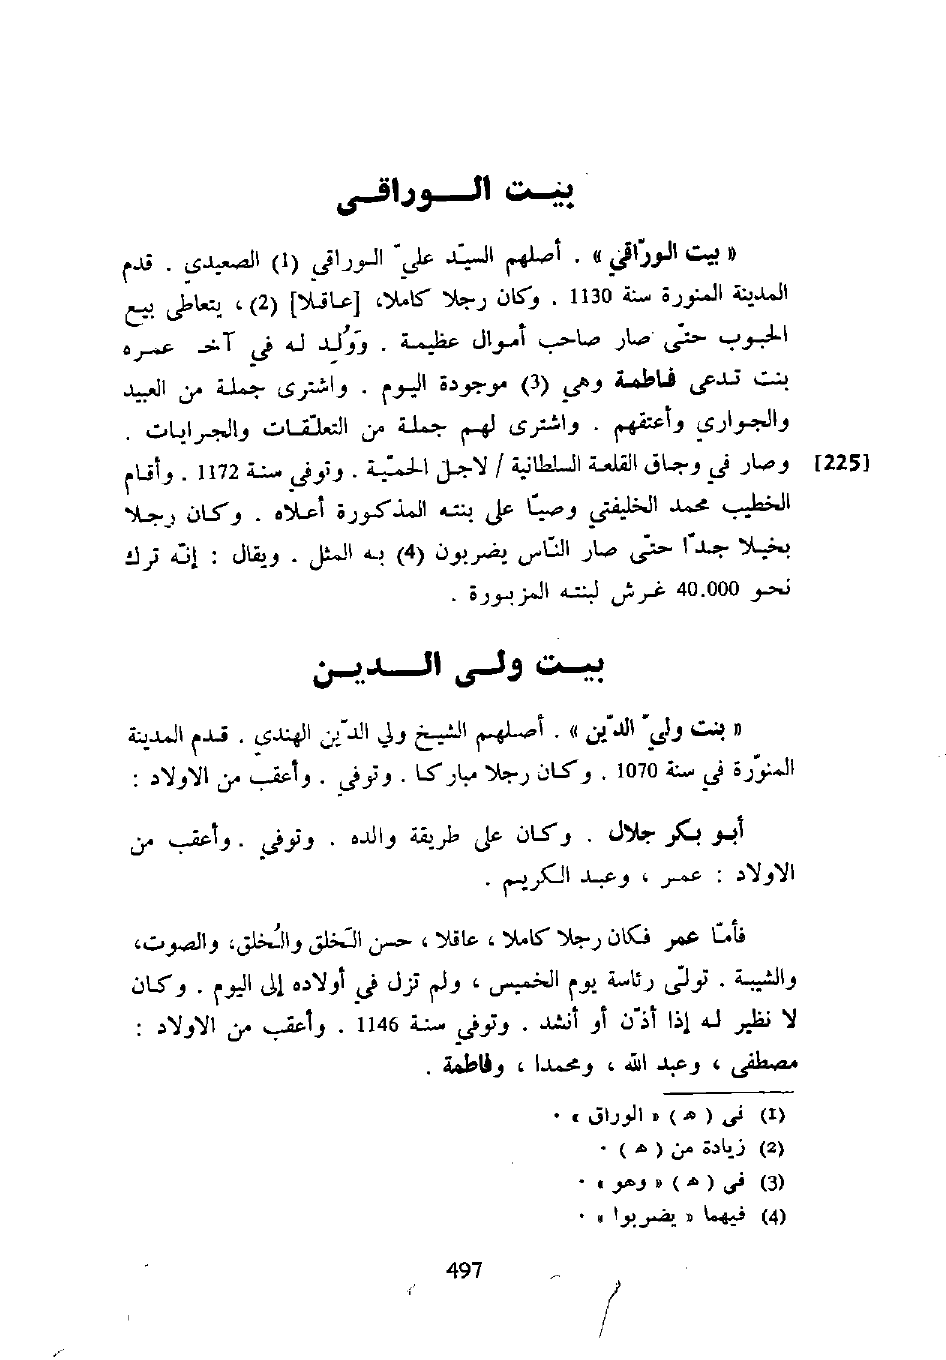 بيت الوراقي
« بيت الورّاقي » . أصلهم السيّد عليّ الوراقي (1) الصعيدي . قدم
المدينة المنورة سنة 1130 . وكان رجلا كاملا، [عاقلا] (2) ، يتعاطى بيع
الحبوب حتّى صار صاحب أموال عظيمة . وَوُلِد له في آخر عمره
بنت تدعى فاطمة وهي (3) موجودة اليوم . واشترى جملة من العبيد
والجواري وأعتقهم . واشترى لهم جملة من التعلّقات والجرايات .
[225] وصار في وجاق القلعة السلطانية / لاجل الحميّة . وتوفي سنة 1172 . وأقام
الخطيب محمد الخليفتي وصيّا على بنته المذكورة أعلاه . وكان رجلا
بخيلا جدّا حتّى صار النّاس يضربون (4) به المثل . ويقال : إنّه ترك
نحو 40.000 غرش لبنته المزبورة .
بيت ولي الدين
« بنت وليّ الدّين » . أصلهم الشيخ ولي الدّين الهندي . قدم المدينة
المنوّرة في سنة 1070 . وكان رجلا مباركا . وتوفي . وأعقب من الاولاد :
أبو بكر جلال . وكان على طريقة والده . وتوفي . وأعقب من
الاولاد : عمر ، وعبد الكريم .
فأمّا عمر فكان رجلا كاملا ، عاقلا ، حسن الخَلق والخُلق، والصوت،
والشيبة . تولّى رئاسة يوم الخميس ، ولم تزل في أولاده إلى اليوم . وكان
لا نظير له إذا أذّن أو أنشد . وتوفي سنة 1146 . وأعقب من الاولاد :
مصطفى ، وعبد الله ، ومحمدا ، وفاطمة .
(1) في ( ه ) « الوراق » .
(2) زيادة من ( ه ) .
(3) في ( ه ) « وهو » .
(4) فيهما « يضربوا » .
497